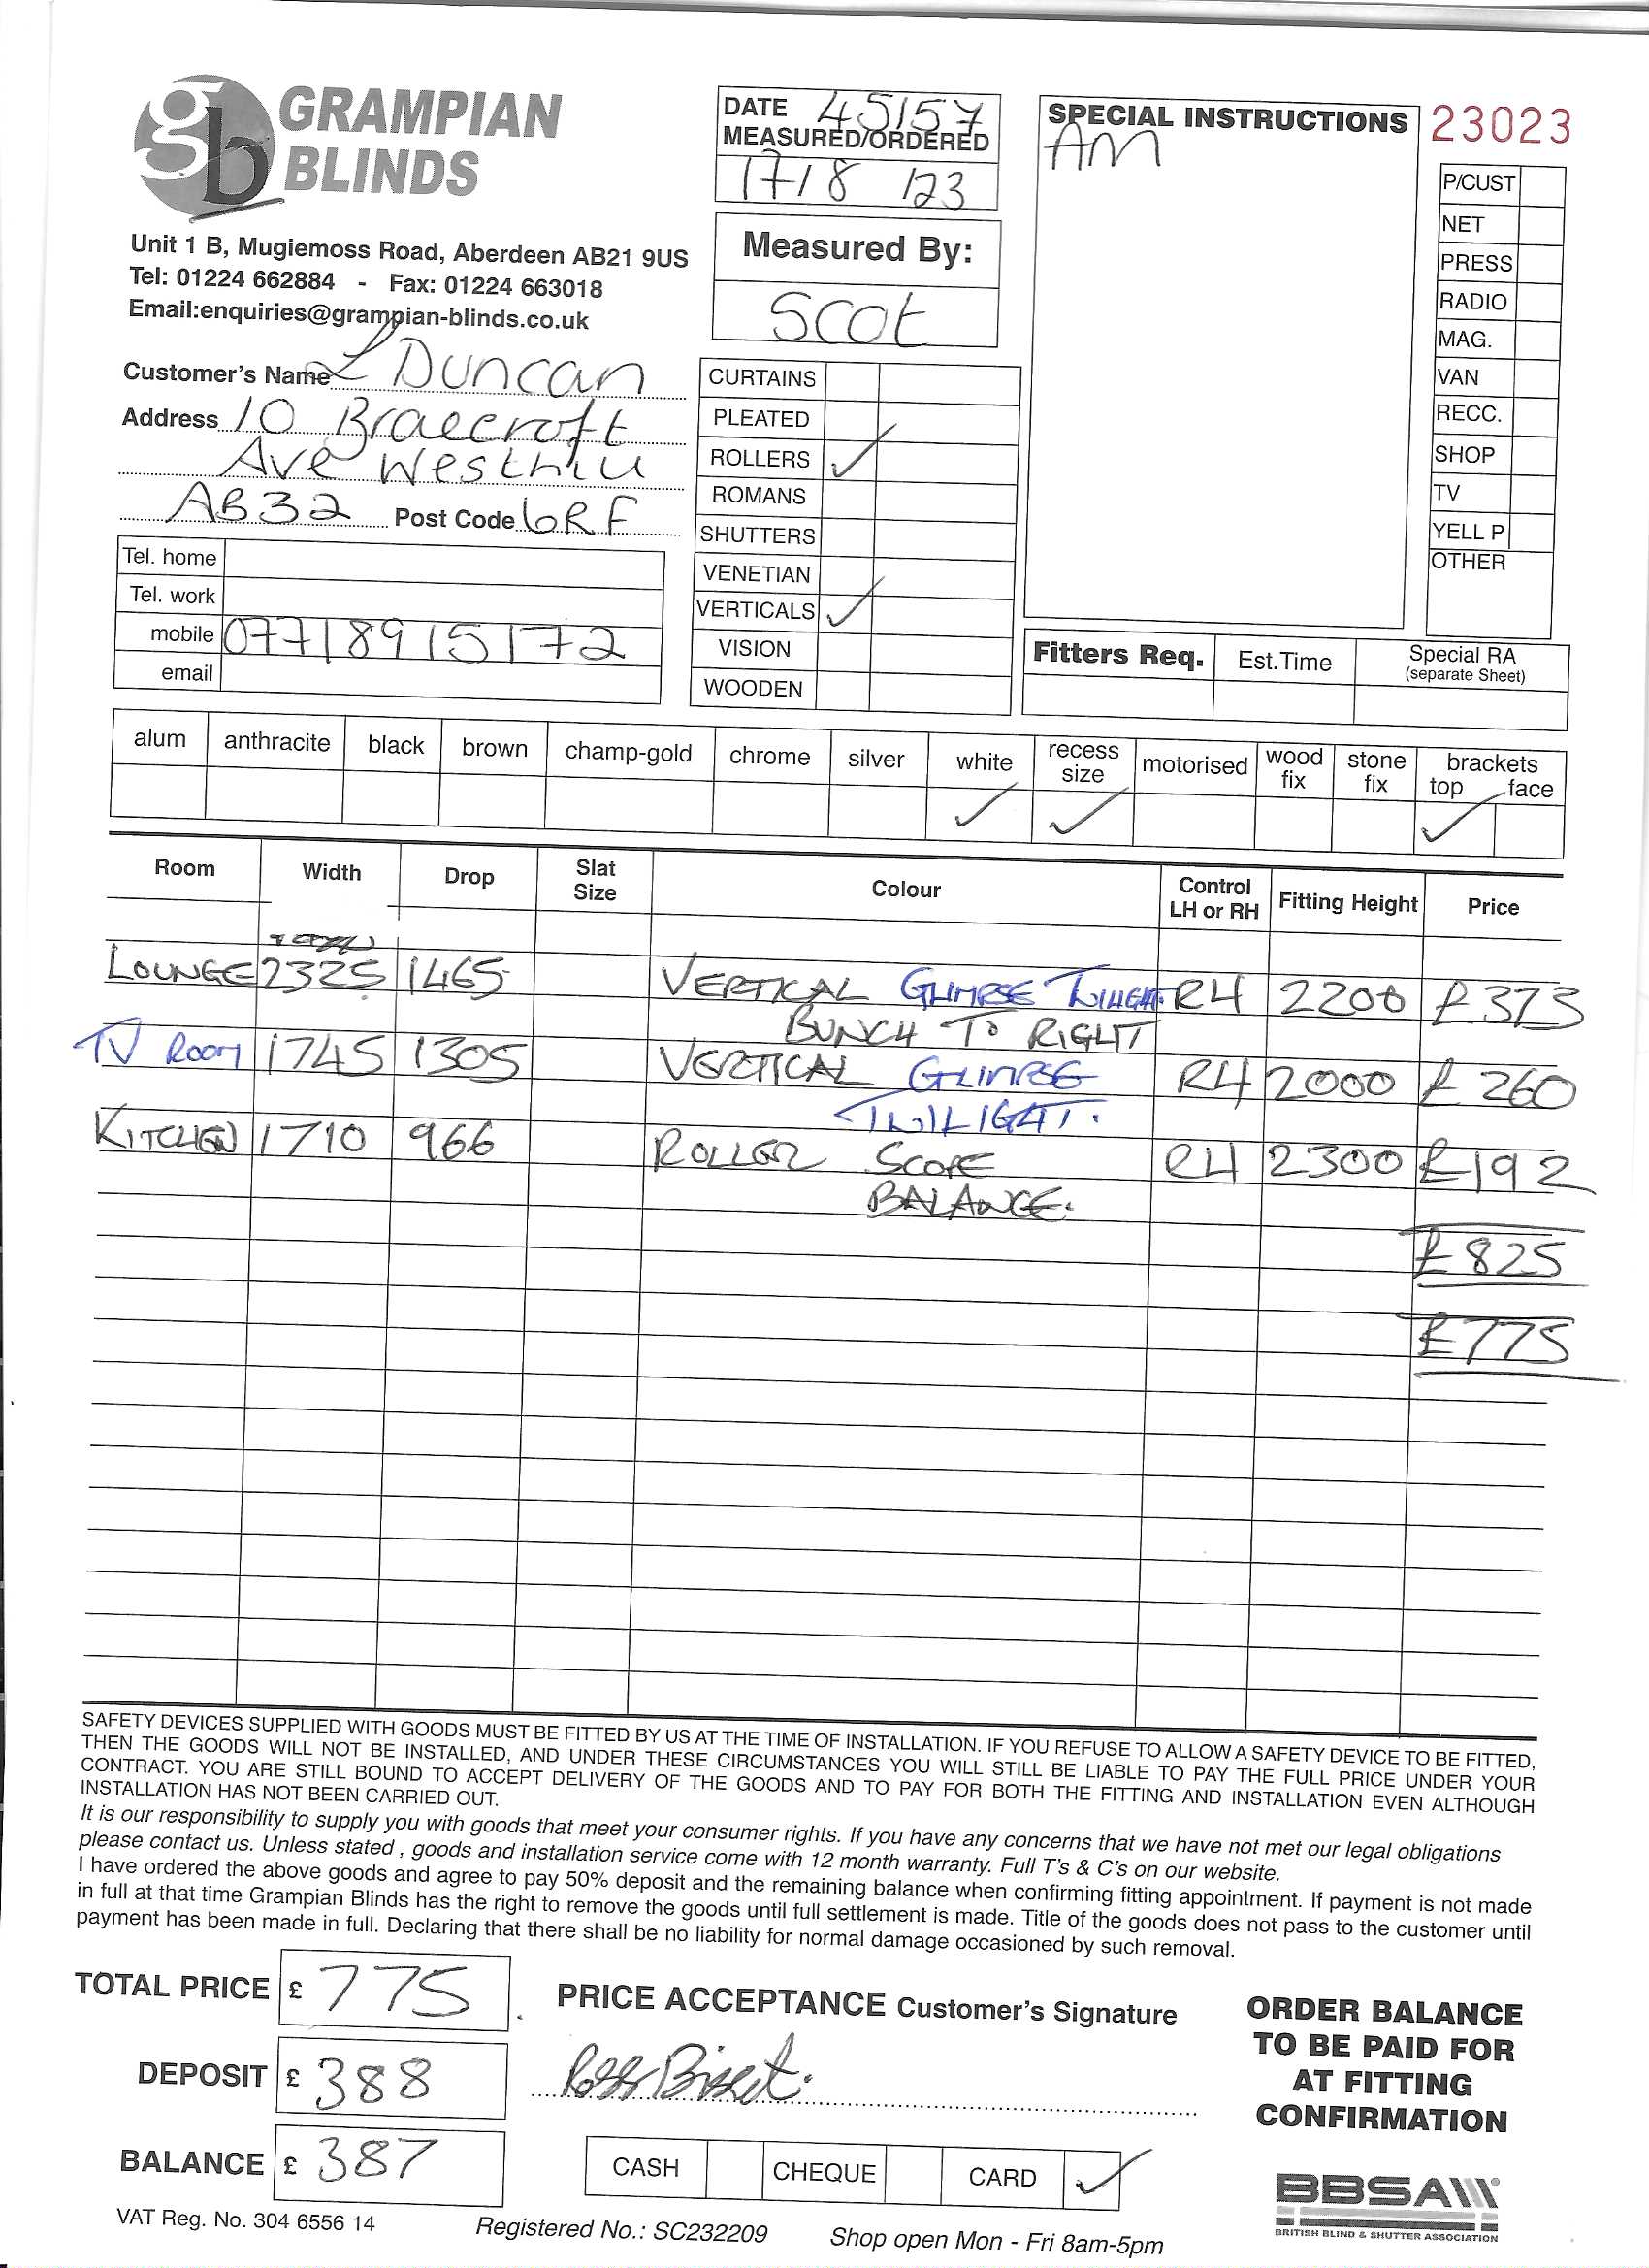 gb GRAMPIAN BLINDS
Unit 1 B, Mugiemoss Road, Aberdeen AB21 9US
Tel: 01224 662884 - Fax: 01224 663018
Email:enquiries@grampian-blinds.co.uk
DATE 45157
MEASURED/ORDERED
17/8/23
Measured By:
Scot
SPECIAL INSTRUCTIONS
AM
23023
P/CUST
NET
PRESS
RADIO
MAG.
VAN
RECC.
SHOP
TV
YELL P
OTHER
Customer's Name L Duncan
Address 10 Braecroft
Ave Westhill
AB32 Post Code 6RF
Tel. home
Tel. work
mobile 07718915172
email
CURTAINS
PLEATED
ROLLERS ✓
ROMANS
SHUTTERS
VENETIAN
VERTICALS ✓
VISION
WOODEN
Fitters Req. Est.Time Special RA (separate Sheet)
alum anthracite black brown champ-gold chrome silver white recess size motorised wood fix stone fix brackets top face
✓ ✓ ✓
Room Width Drop Slat Size Colour Control LH or RH Fitting Height Price
LOUNGE 2325 1465 VERTICAL GLIMPSE TWILIGHT RH 2200 £373
BUNCH TO RIGHT
TV ROOM 1745 1305 VERTICAL GLIMPSE RH 2000 £260
TWILIGHT.
KITCHEN 1710 966 ROLLER SCOPE RH 2300 £192
BALANCE.
£825
£775
SAFETY DEVICES SUPPLIED WITH GOODS MUST BE FITTED BY US AT THE TIME OF INSTALLATION. IF YOU REFUSE TO ALLOW A SAFETY DEVICE TO BE FITTED,
THEN THE GOODS WILL NOT BE INSTALLED, AND UNDER THESE CIRCUMSTANCES YOU WILL STILL BE LIABLE TO PAY THE FULL PRICE UNDER YOUR
CONTRACT. YOU ARE STILL BOUND TO ACCEPT DELIVERY OF THE GOODS AND TO PAY FOR BOTH THE FITTING AND INSTALLATION EVEN ALTHOUGH
INSTALLATION HAS NOT BEEN CARRIED OUT.
It is our responsibility to supply you with goods that meet your consumer rights. If you have any concerns that we have not met our legal obligations
please contact us. Unless stated , goods and installation service come with 12 month warranty. Full T's & C's on our website.
I have ordered the above goods and agree to pay 50% deposit and the remaining balance when confirming fitting appointment. If payment is not made
in full at that time Grampian Blinds has the right to remove the goods until full settlement is made. Title of the goods does not pass to the customer until
payment has been made in full. Declaring that there shall be no liability for normal damage occasioned by such removal.
TOTAL PRICE £ 775
PRICE ACCEPTANCE Customer's Signature
DEPOSIT £ 388
Ross Bisset.
BALANCE £ 387
CASH CHEQUE CARD ✓
ORDER BALANCE
TO BE PAID FOR
AT FITTING
CONFIRMATION
BBSA
BRITISH BLIND & SHUTTER ASSOCIATION
VAT Reg. No. 304 6556 14
Registered No.: SC232209
Shop open Mon - Fri 8am-5pm